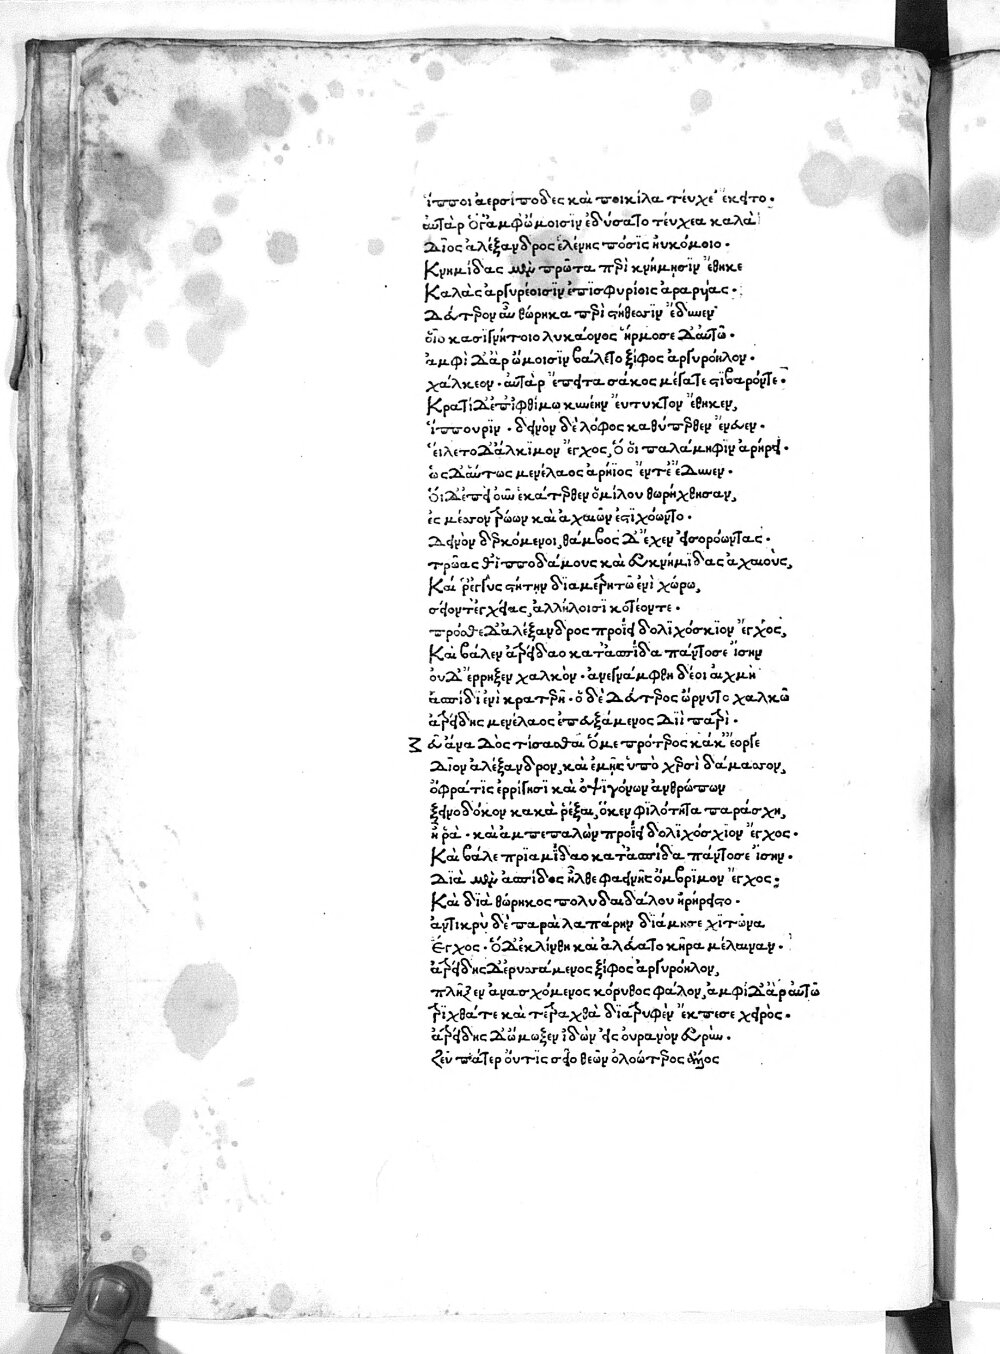 ἵπποι ἀερσίποδες καὶ ποικίλα τεύχε' ἔκειτο·
αὐτὰρ ὅγ' ἀμφ' ὤμοισιν ἐδύσατο τεύχεα καλὰ
Δῖος ἀλέξανδρος ἑλένης πόσις ἠυκόμοιο·
Κνημίδας μὲν πρῶτα περὶ κνήμησιν ἔθηκε
Καλὰς ἀργυρέοισιν ἐπισφυρίοις ἀραρυίας·
Δεύτερον αὖ θώρηκα περὶ στήθεσσιν ἔδυνεν
οἷο κασιγνήτοιο λυκάονος ἥρμοσε δ' αὐτῶ·
ἀμφὶ δ' ἂρ ὤμοισιν βάλετο ξίφος ἀργυρόηλον·
χάλκεον· αὐτὰρ ἔπειτα σάκος μέγα τε στιβαρόν τε·
Κρατὶ δ' ἐπιφθίμω κυνέην εὔτυκτον ἔθηκεν,
ἵππουριν· δεινὸν δὲ λόφος καθύπερθεν ἔνευεν·
εἵλετο δ' ἄλκιμον ἔγχος, ὅ οἱ παλάμηφιν ἀρήρει·
ὡς δ' αὔτως μενέλαος ἀρήϊος ἔντε' ἔδυνεν·
Οἱ δ' ἐπεὶ οὖν ἑκάτερθεν ὁμίλου θωρήχθησαν,
ἐς μέσσον τρώων καὶ ἀχαιῶν ἐστιχόωντο·
Δεινὸν δερκόμενοι, θάμβος δ' ἔχεν εἰσορόωντας·
τρῶας θ' ἱπποδάμους καὶ εὐκνήμιδας ἀχαιοὺς,
Καί ῥ' ἐγγὺς στήτην διαμετρητῶ ἐνὶ χώρω,
σείοντ' ἐγχείας, ἀλλήλοισι κοτέοντε·
πρόσθε δ' ἀλέξανδρος προΐει δολιχόσκιον ἔγχος,
Καὶ βάλεν ἀτρείδαο κατ' ἀσπίδα πάντοσε ἴσην
οὐδ' ἔρρηξεν χαλκὸν· ἀνεγνάμφθη δέ οἱ αἰχμὴ
ἀσπίδι ἐνὶ κρατερῆ· ὁ δὲ δεύτερος ὤρνυτο χαλκῶ
ἀτρείδης μενέλαος ἐπευξάμενος Διὶ πατρί·
Ζεῦ ἄνα δὸς τίσασθαι ὅ με πρότερος κάκ' ἔοργε
Δῖον ἀλέξανδρον, καὶ ἐμῆς ὑπὸ χερσὶ δάμασσον,
ὄφρά τις ἐρρίγησι καὶ ὀψιγόνων ἀνθρώπων
ξεινοδόκον κακὰ ῥέξαι, ὅ κεν φιλότητα παράσχη,
ἦ ῥὰ· καὶ ἀμπεπαλὼν προΐει δολιχόσκιον ἔγχος·
Καὶ βάλε πριαμίδαο κατ' ἀσπίδα πάντοσε ἴσην·
Διὰ μὲν ἀσπίδος ἦλθε φαεινῆς ὄμβριμον ἔγχος·
Καὶ διὰ θώρηκος πολυδαιδάλου ἠρήρειστο·
ἀντικρὺ δὲ παραὶ λαπάρην διάμησε χιτῶνα
Ἔγχος· ὁ δ' ἐκλίνθη καὶ ἀλεύατο κῆρα μέλαιναν·
ἀτρείδης δ' ἐρυσσάμενος ξίφος ἀργυρόηλον,
πλῆξεν ἀνασχόμενος κόρυθος φάλον, ἀμφὶ δ' ἂρ αὐτῶ
τριχθά τε καὶ τετραχθὰ διατρυφὲν ἔκπεσε χειρὸς·
ἀτρείδης δ' ὤμωξεν ἰδὼν εἰς οὐρανὸν εὐρὺν·
Ζεῦ πάτερ οὔτις σεῖο θεῶν ὀλοώτερος ἄλλος